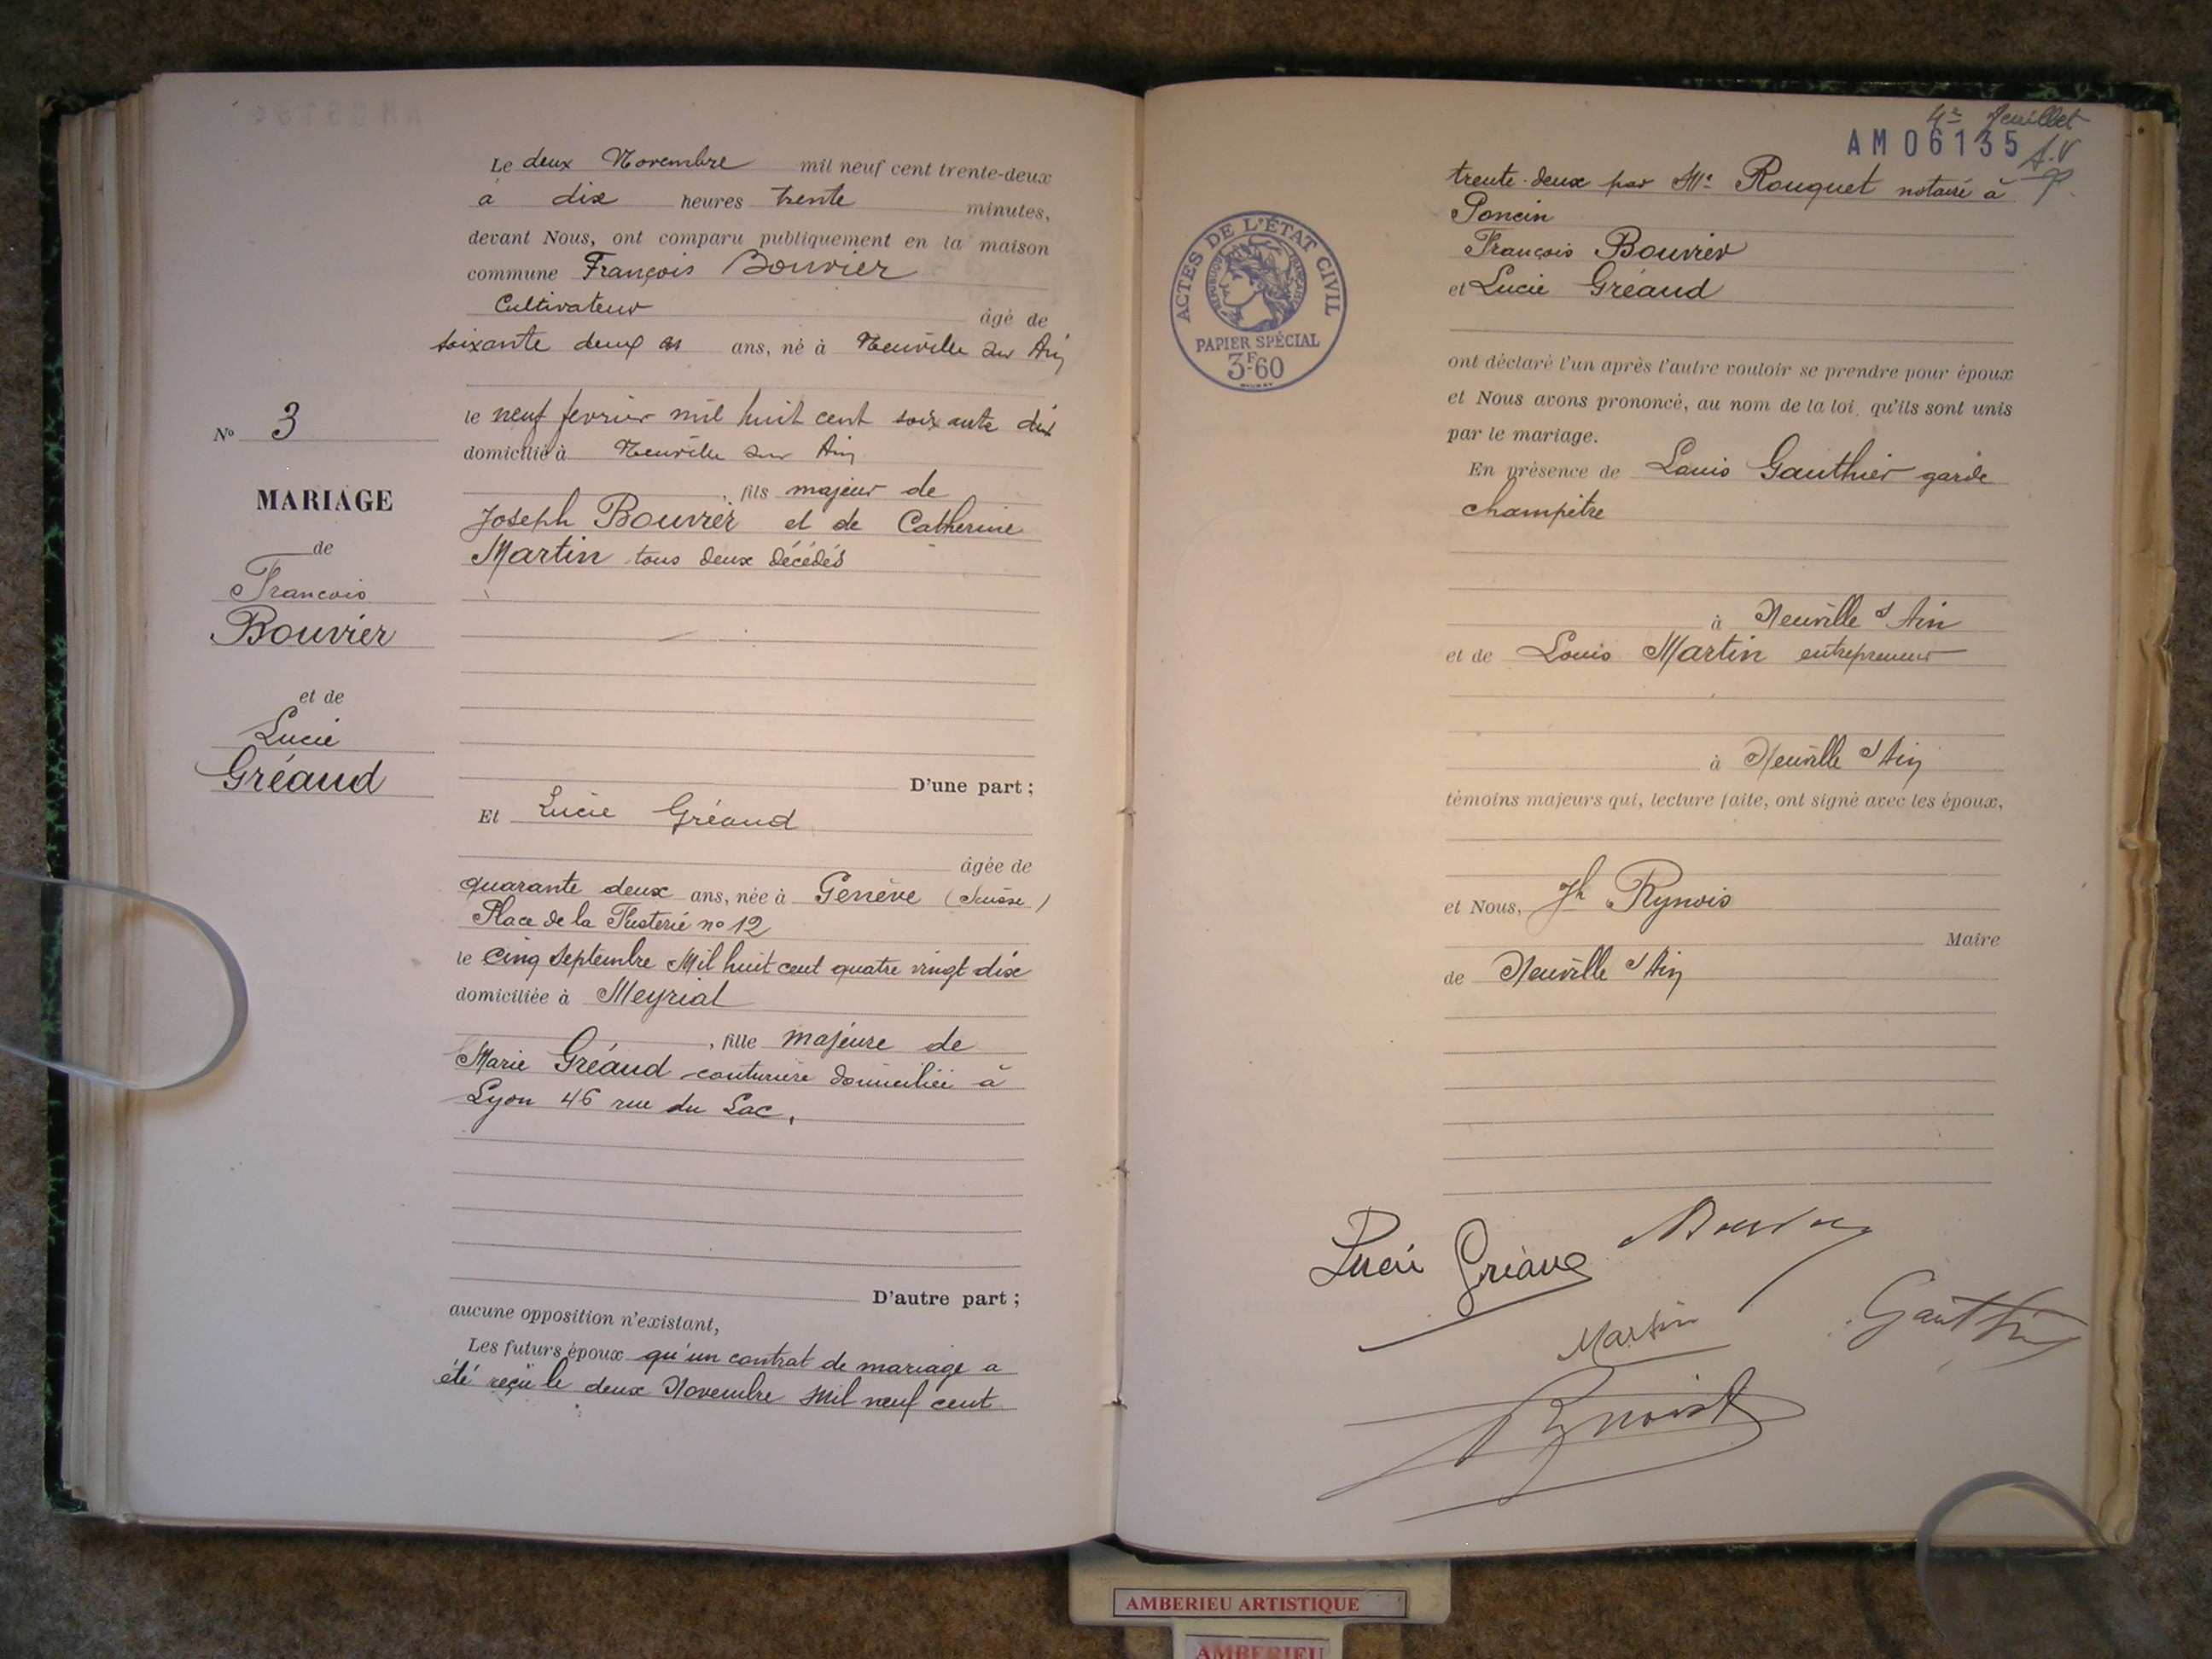 Le deux Novembre mil neuf cent trente-deux
à dix heures trente minutes,
devant Nous, ont comparu publiquement en la maison
commune François Bouvier
Cultivateur âgé de
soixante deux ans, né à Neuville sur Ain
le neuf fevrier mil huit cent soixante dix
domicilié à Neuville sur Ain
, fils majeur de
Joseph Bouvier et de Catherine
Martin tous deux décédés
D'une part ;
Et Lucie Gréaud
âgée de
quarante deux ans, née à Genève (Suisse)
Place de la Fusterie no 12
le Cinq Septembre Mil huit cent quatre vingt dix
domiciliée à Meyriat
, fille majeure de
Marie Gréaud couturière domiciliée à
Lyon 46 rue du Lac,
D'autre part ;
aucune opposition n'existant,
Les futurs époux qu'un contrat de mariage a
été reçu le deux Novembre Mil neuf cent
No 3
MARIAGE
de
Francois
Bouvier
et de
Lucie
Gréaud
4e feuillet
AM06135
trente-deux par Me Rouquet notaire à
Poncin
François Bouvier
et Lucie Gréaud
ont déclaré l'un après l'autre vouloir se prendre pour époux
et Nous avons prononcé, au nom de la loi, qu'ils sont unis
par le mariage.
En présence de Louis Gauthier garde
champêtre
à Neuville s/ Ain
et de Louis Martin entrepreneur
à Neuville s/ Ain
témoins majeurs qui, lecture faite, ont signé avec les époux,
et Nous, Jh Rynois
Maire
de Neuville s/ Ain
ACTES DE L'ÉTAT CIVIL
RÉPUBLIQUE FRANÇAISE
PAPIER SPÉCIAL
3F.60
Lucie Gréaud
Martin
Gauthier
AMBERIEU ARTISTIQUE
AMBERIEU